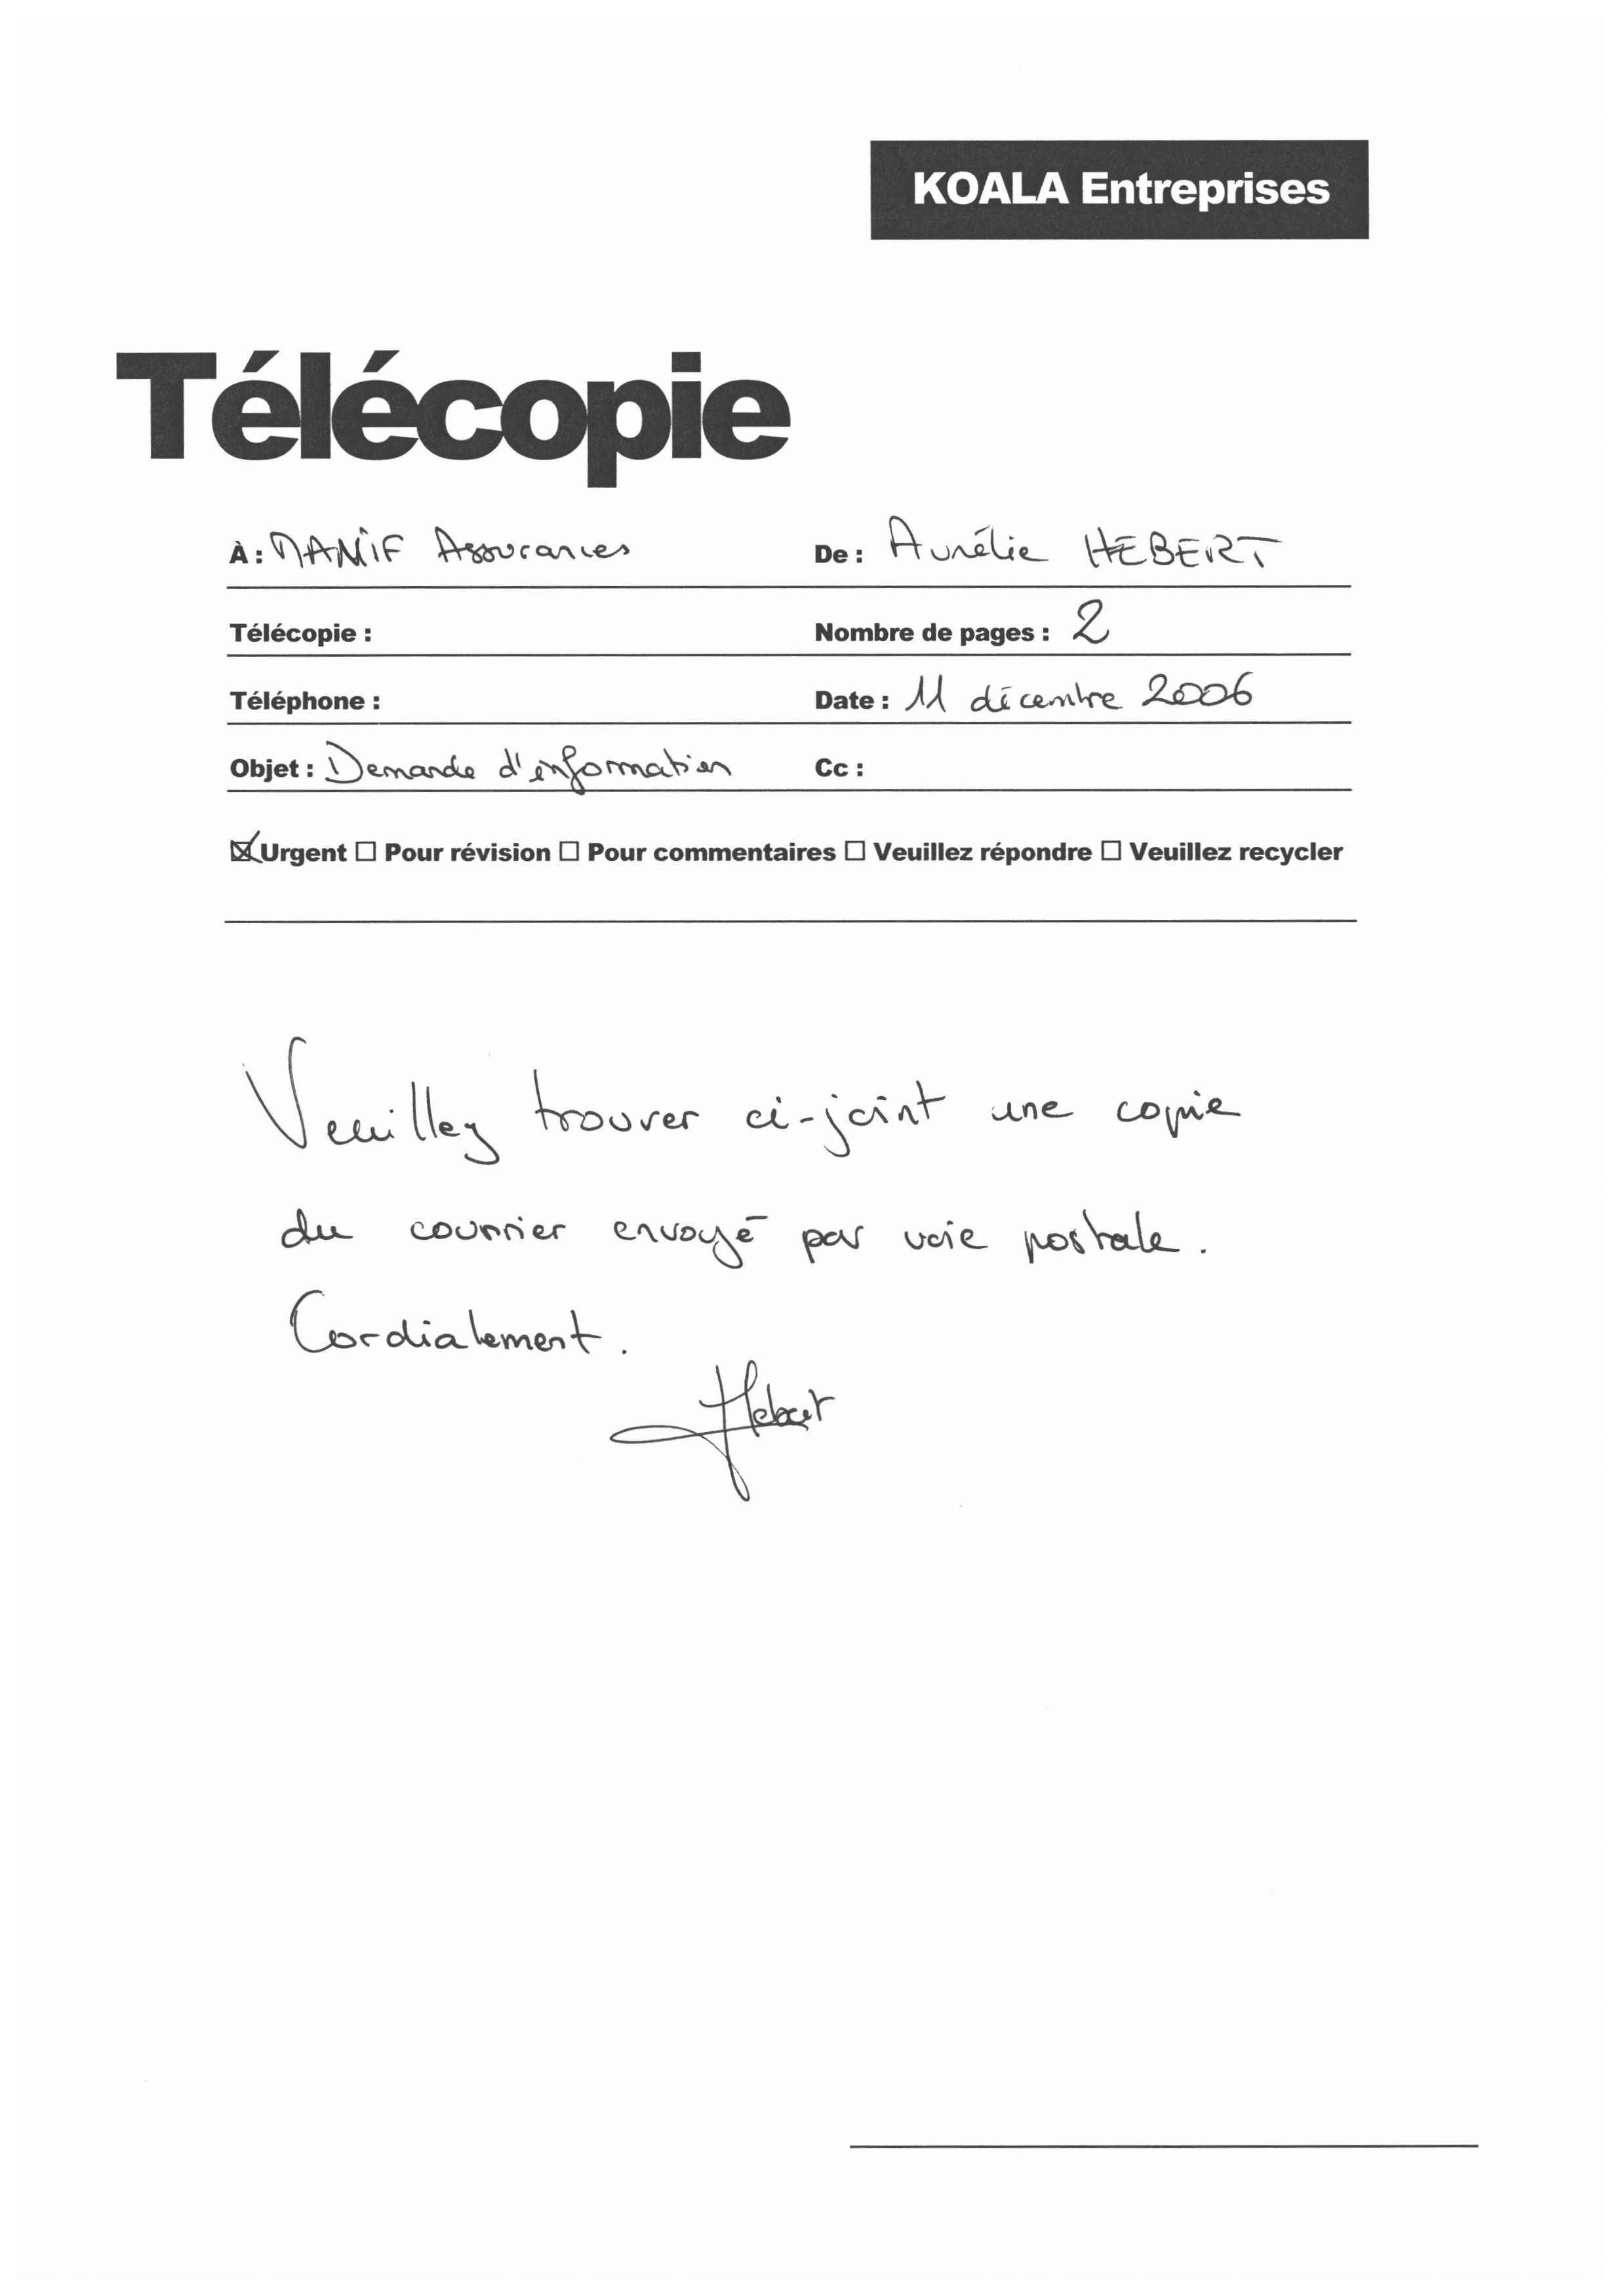 KOALA Entreprises
Télécopie
À : MANIF Assurances De : Aurélie HEBERT
Télécopie : Nombre de pages : 2
Téléphone : Date : 11 décembre 2006
Objet : Demande d'information Cc :
☒ Urgent ☐ Pour révision ☐ Pour commentaires ☐ Veuillez répondre ☐ Veuillez recycler
Veuillez trouver ci-joint une copie
du courrier envoyé par voie postale.
Cordialement.
Hebert